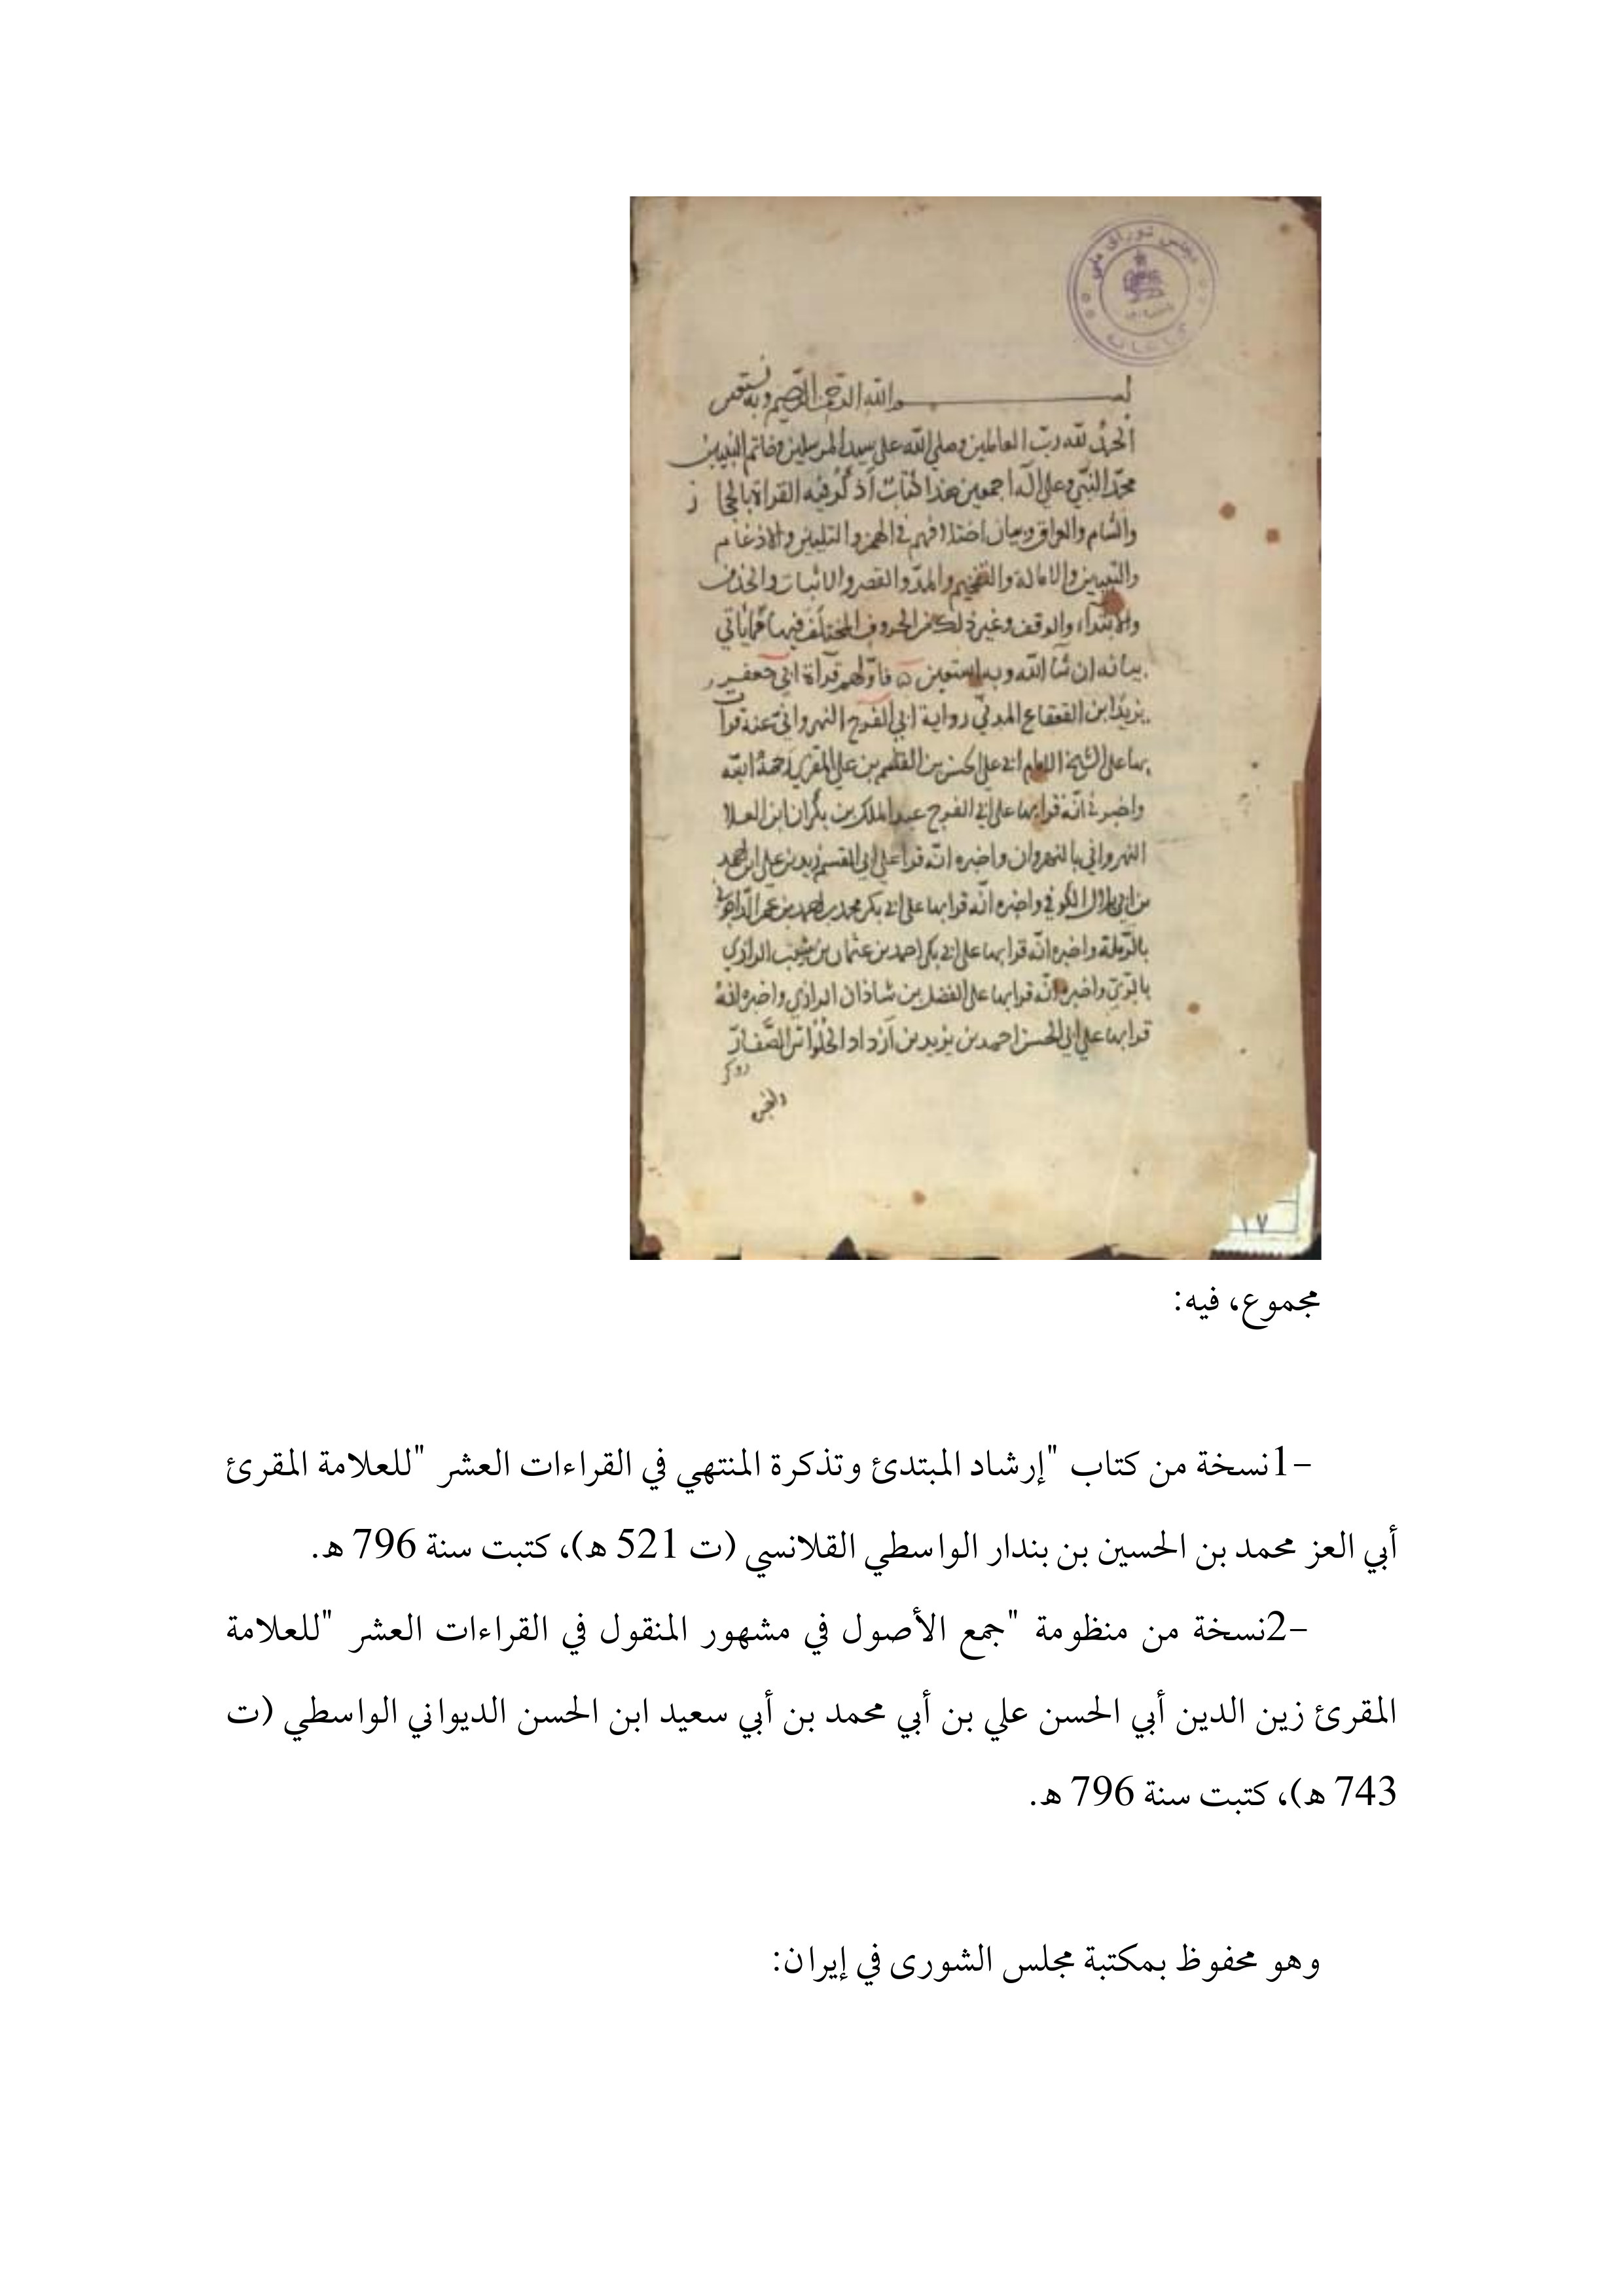 مجلس شورای ملی
بسم الله الرحمن الرحيم وبه نستعين
الحمد لله رب العالمين وصلى الله على سيد المرسلين وخاتم النبيين
محمد النبي وعلى آله اجمعين هذا كتاب أذكر فيه القراة بالحجاز
والشام والعراق وبيان اختلافهم في الهمز والتليين والادغام
والتبيين والامالة والتفخيم والمد والقصر والاثبات والحذف
والابتداء والوقف وغير ذلك من الحروف المختلف فيها مما ياتي
بيانه ان شا الله وبه استعين فاولهم قرآة ابي جعفر
يزيد ابن القعقاع المدني رواية ابي الفرج النهرواني عنه قرات
بها على الشيخ الامام ابي علي الحسن بن القسم بن علي المقري رحمه الله
واخبرني انه قرا بها على ابي الفرج عبد الملك بن بكران ابن العلا
النهرواني بالنهروان واخبره انه قرا على ابي القسم زيد بن علي ابن احمد
بن ابي بلال الكوفي واخبره انه قرا بها على ابي بكر محمد بن احمد بن عمر الداجوني
بالرملة واخبره انه قرا بها على ابي بكر احمد بن عثمان بن شبيب الرازي
بالري واخبره انه قرا بها على الفضل بن شاذان الرازي واخبره انه
قرا بها على ابي الحسن احمد بن يزيد بن أزداد الحلواني الصفار
١٧
مجموع، فيه:
-1نسخة من كتاب "إرشاد المبتدئ وتذكرة المنتهي في القراءات العشر "للعلامة المقرئ
أبي العز محمد بن الحسين بن بندار الواسطي القلانسي (ت 521 ه)، كتبت سنة 796 ه.
-2نسخة من منظومة "جمع الأصول في مشهور المنقول في القراءات العشر "للعلامة
المقرئ زين الدين أبي الحسن علي بن أبي محمد بن أبي سعيد ابن الحسن الديواني الواسطي (ت
743 ه)، كتبت سنة 796 ه.
وهو محفوظ بمكتبة مجلس الشورى في إيران: